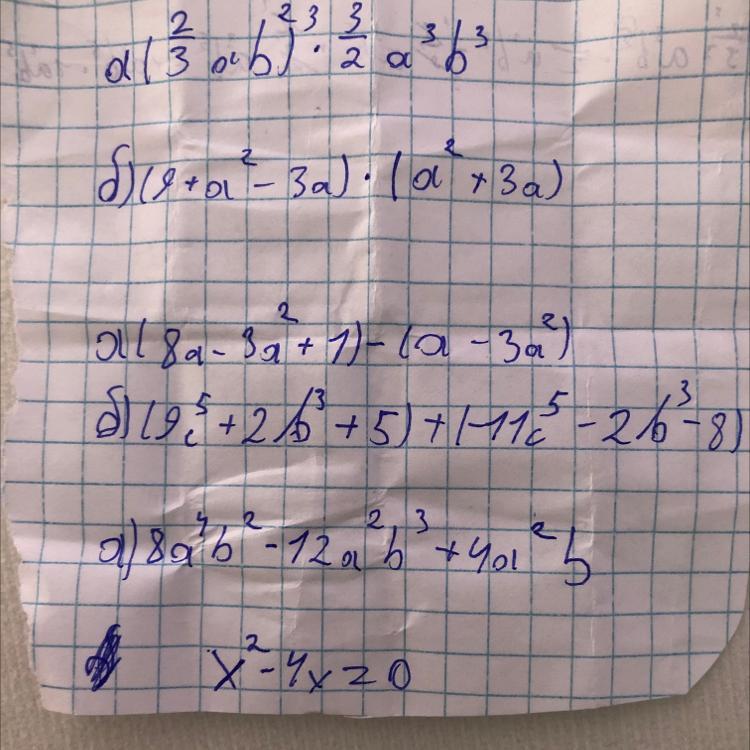 а) (2/3 ab²)³ · 3/2 a³b³
б) (9 + a² - 3a) · (a² + 3a)
а) (8a - 3a² + 1) - (a - 3a²)
б) (9c⁵ + 2b³ + 5) + (-11c⁵ - 2b³ - 8)
а) 8a⁴b² - 12a²b³ + 4a²b
x² - 4x = 0